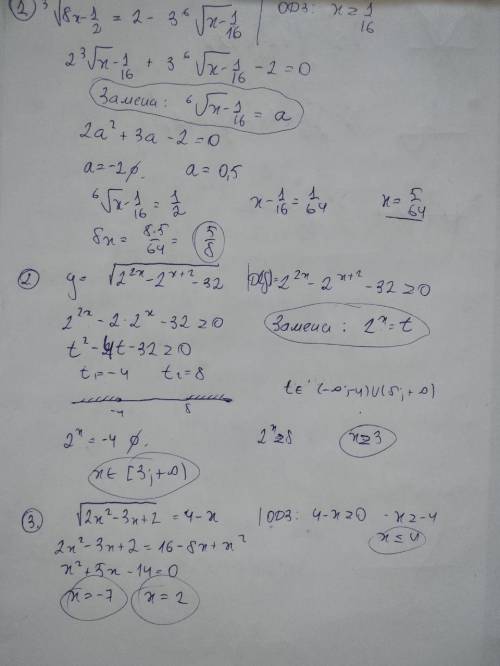 1) ³√8x-1/2 = 2 - 3 ⁶√x-1/16 | ОДЗ: x ≥ 1/16
2 ³√x-1/16 + 3 ⁶√x-1/16 - 2 = 0
Замена: ⁶√x-1/16 = a
2a² + 3a - 2 = 0
a = -2 ∅. a = 0,5
⁶√x-1/16 = 1/2 x-1/16 = 1/64 x = 5/64
8x = 8·5/64 = 5/8
2) y = √2^2x - 2^x+2 - 32 |D(y) = 2^2x - 2^x+2 - 32 ≥ 0
2^2x - 2·2^x - 32 ≥ 0 Замена: 2^x = t
t² - 4t - 32 ≥ 0
t₁ = -4 t₂ = 8 t ∈ (-∞; -4) ∪ (8; +∞)
-4 8
2^x = -4 ∅. 2^x ≥ 8 x ≥ 3
x ∈ [3; +∞)
3. √2x² - 3x + 2 = 4 - x | ОДЗ: 4 - x ≥ 0 -x ≥ -4
2x² - 3x + 2 = 16 - 8x + x² x ≤ 4
x² + 5x - 14 = 0
x = -7 x = 2